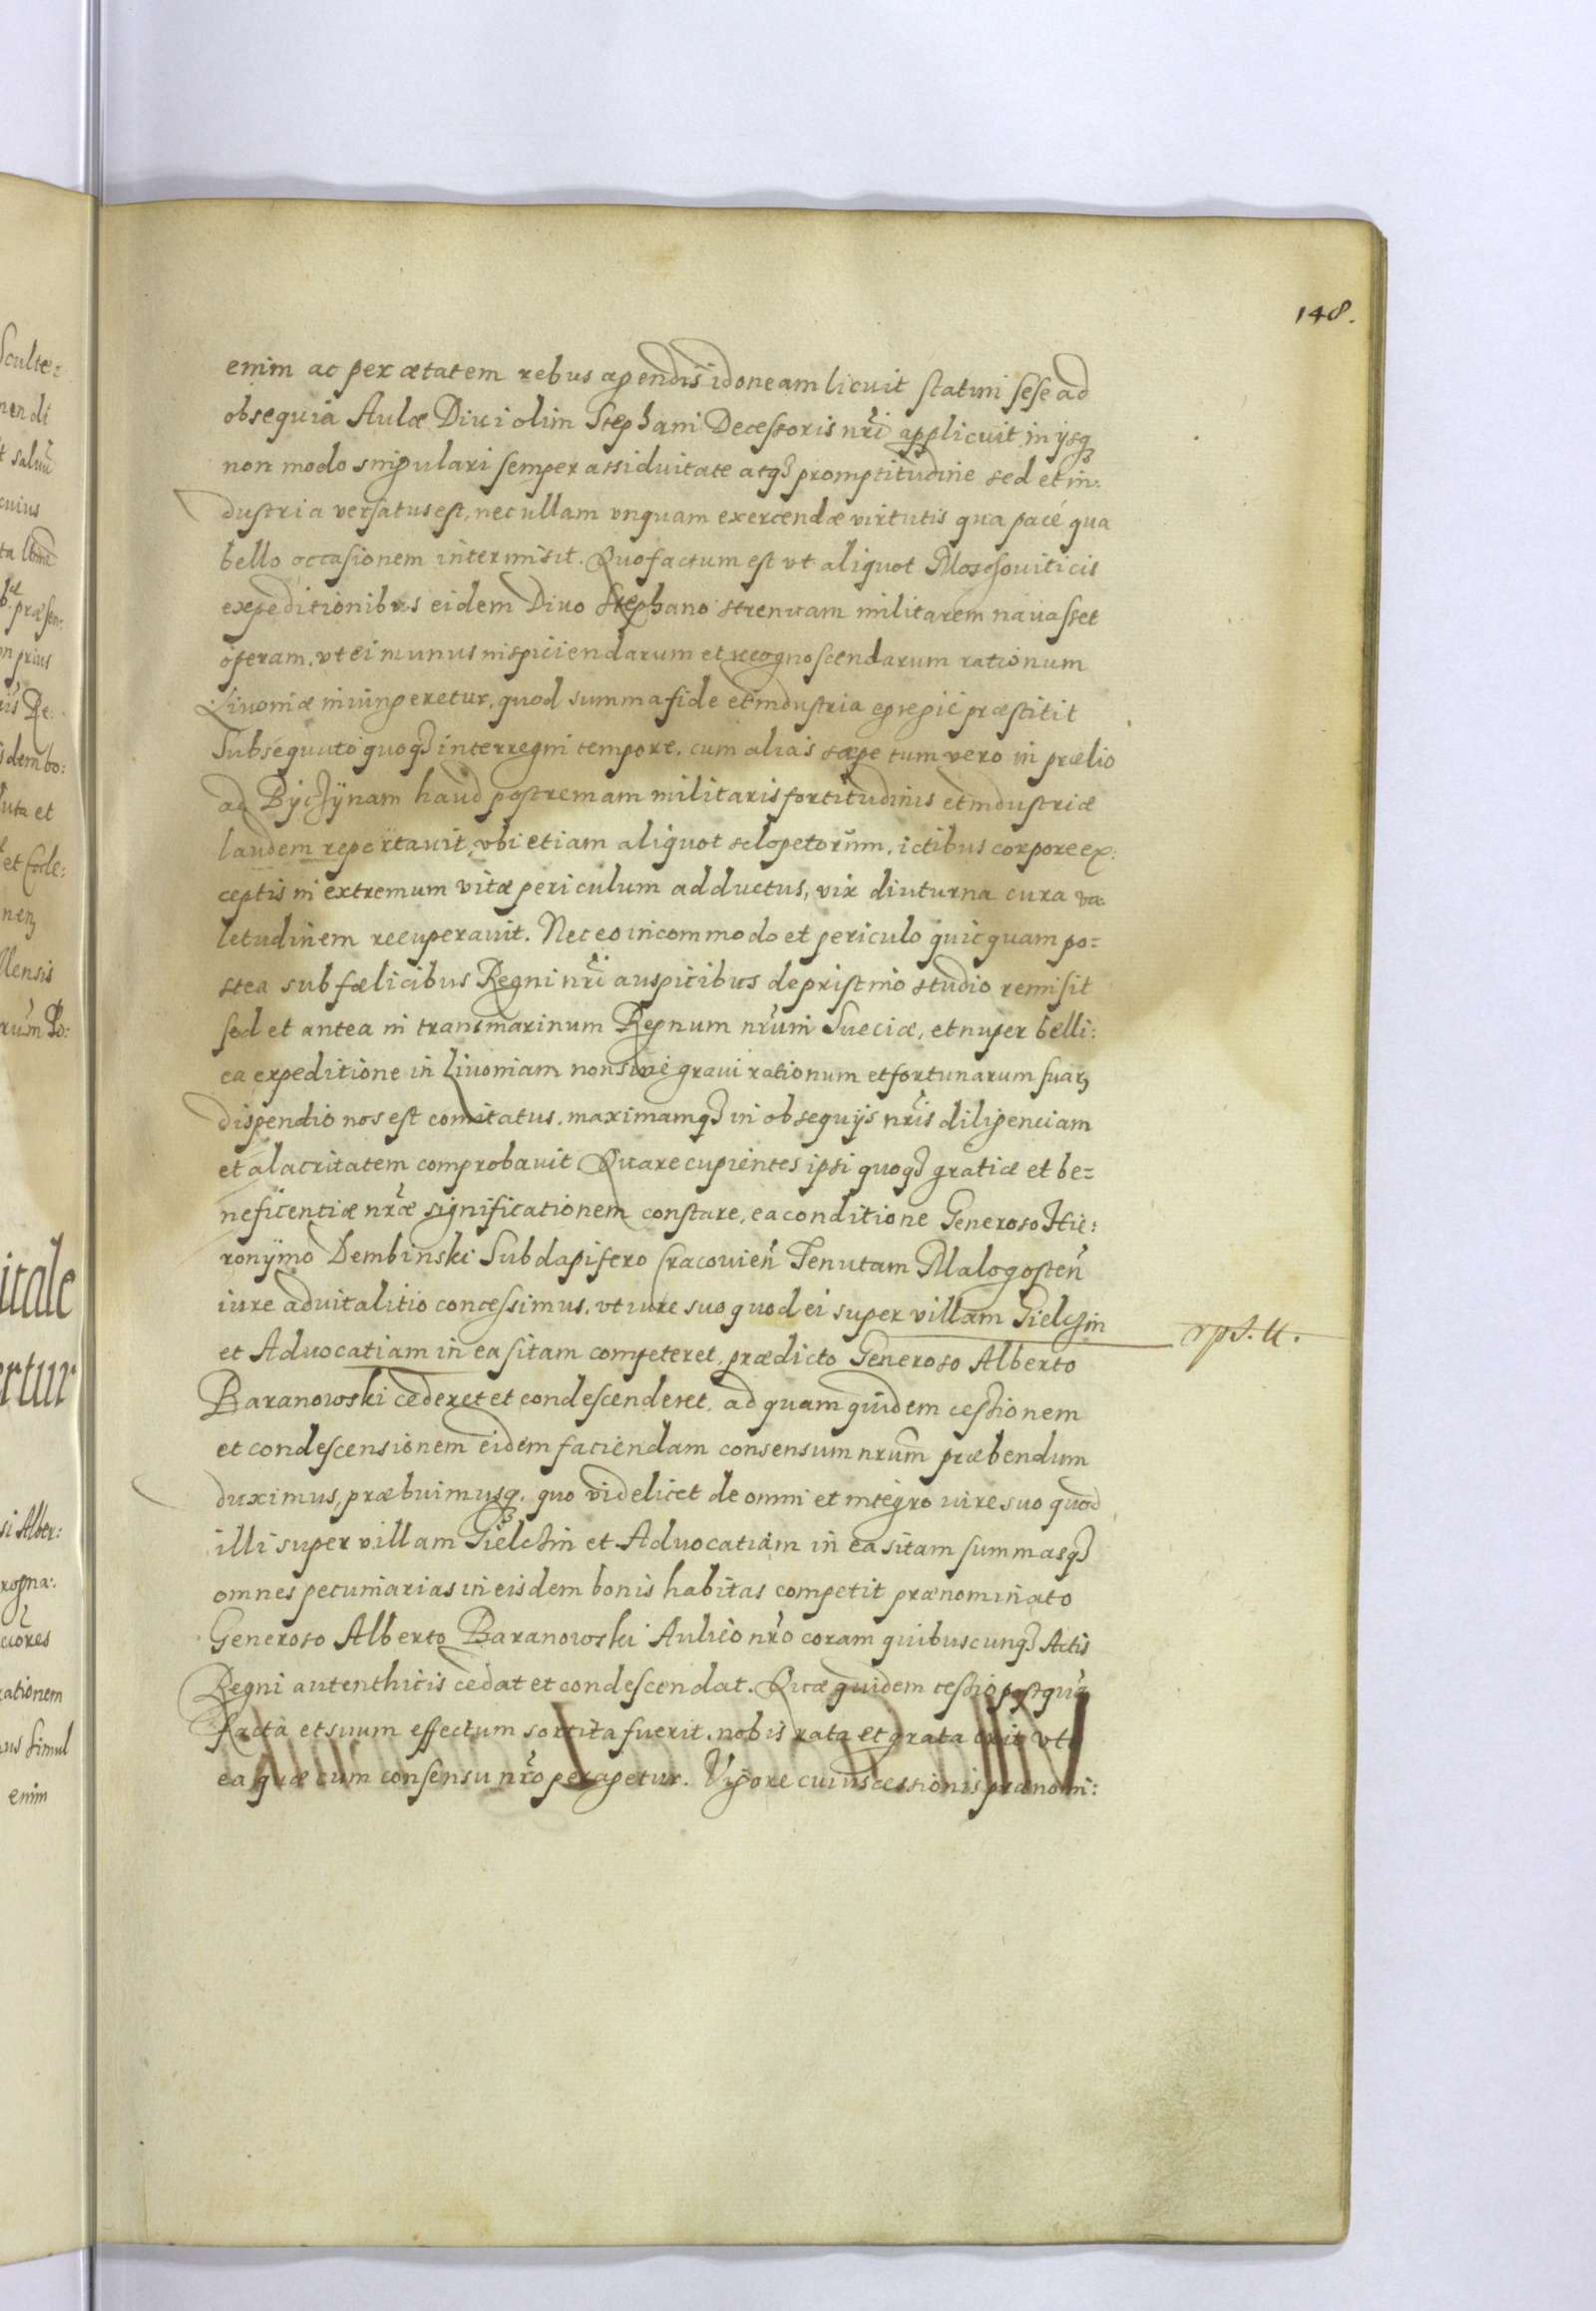 148.
enim ac per ætatem rebus agendis idoneam licuit statim sese ad
obsequia Aulæ Diui olim Stephani Decessoris nrĩ applicuit in ijsqȝ
non modo singulari semper assiduitate atqȝ promptitudine sed et in:
dustria versatus est, nec ullam vnquam exercendæ virtutis qua pace qua
bello occasionem intermisit. Quo factum est vt aliquot Moschouiticis
expeditionibus eidem Diuo Stephano strenuam militarem nauasset
operam, vt ei munus inspiciendarum et recognoscendarum rationum
Liuoniæ iniungeretur, quod summa fide et industria egregie præstitit
Subsequuto quoqȝ interregni tempore, cum alias sæpe tum vero in prælio
ad Byczynam haud postremam militaris fortitudinis et industriæ
laudem reportauit, vbi etiam aliquot sclopetorum, ictibus corpore ex:
ceptis in extremum vitæ periculum adductus, vix diuturna cura va:
letudinem recuperauit. Nec eo incommodo et periculo quicquam po=
stea sub fœlicibus Regni nrĩ auspicibus de pristino studio remisit
sed et antea in transmarinum Regnum nrũm Sueciæ, et nuper belli:
ca expeditione in Liuoniam non sine graui rationum et fortunarum suarȝ
dispendio nos est comitatus, maximamqȝ in obsequijs nrĩs diligenciam
et alacritatem comprobauit Quare cupientes ipsi quoqȝ gratiæ et be=
neficentiæ nræ̃ significationem constare, ea conditione Generoso Hie:
ronÿmo Dembinski Subdapifero Cracouieñ Tenutam Malogosteñ
iure aduitalitio concessimus, vt iure suo quod ei super villam Gielczin
et Aduocatiam in ea sitam competeret, prædicto Generoso Alberto
Baranowski cederet et condescenderet, ad quam quidem cessionem
et condescensionem eidem faciendam consensum nrũm præbendum
duximus, præbuimusqȝ. quo videlicet de omni et integro iure suo quod
illi super villam Gielczin et Aduocatiam in ea sitam summasqȝ
omnes pecuniarias in eisdem bonis habitas competit prænominato
Generoso Alberto Baranowski Aulico nrõ coram quibuscunqȝ Actis
Regni autenthicis cedat et condescendat. Quæ quidem cessio postquã
facta et suum effectum sortita fuerit, nobis rata et grata erit vt
ea quæ cum consensu nrõ peragetur. Vigore cuius cessionis prænomi: